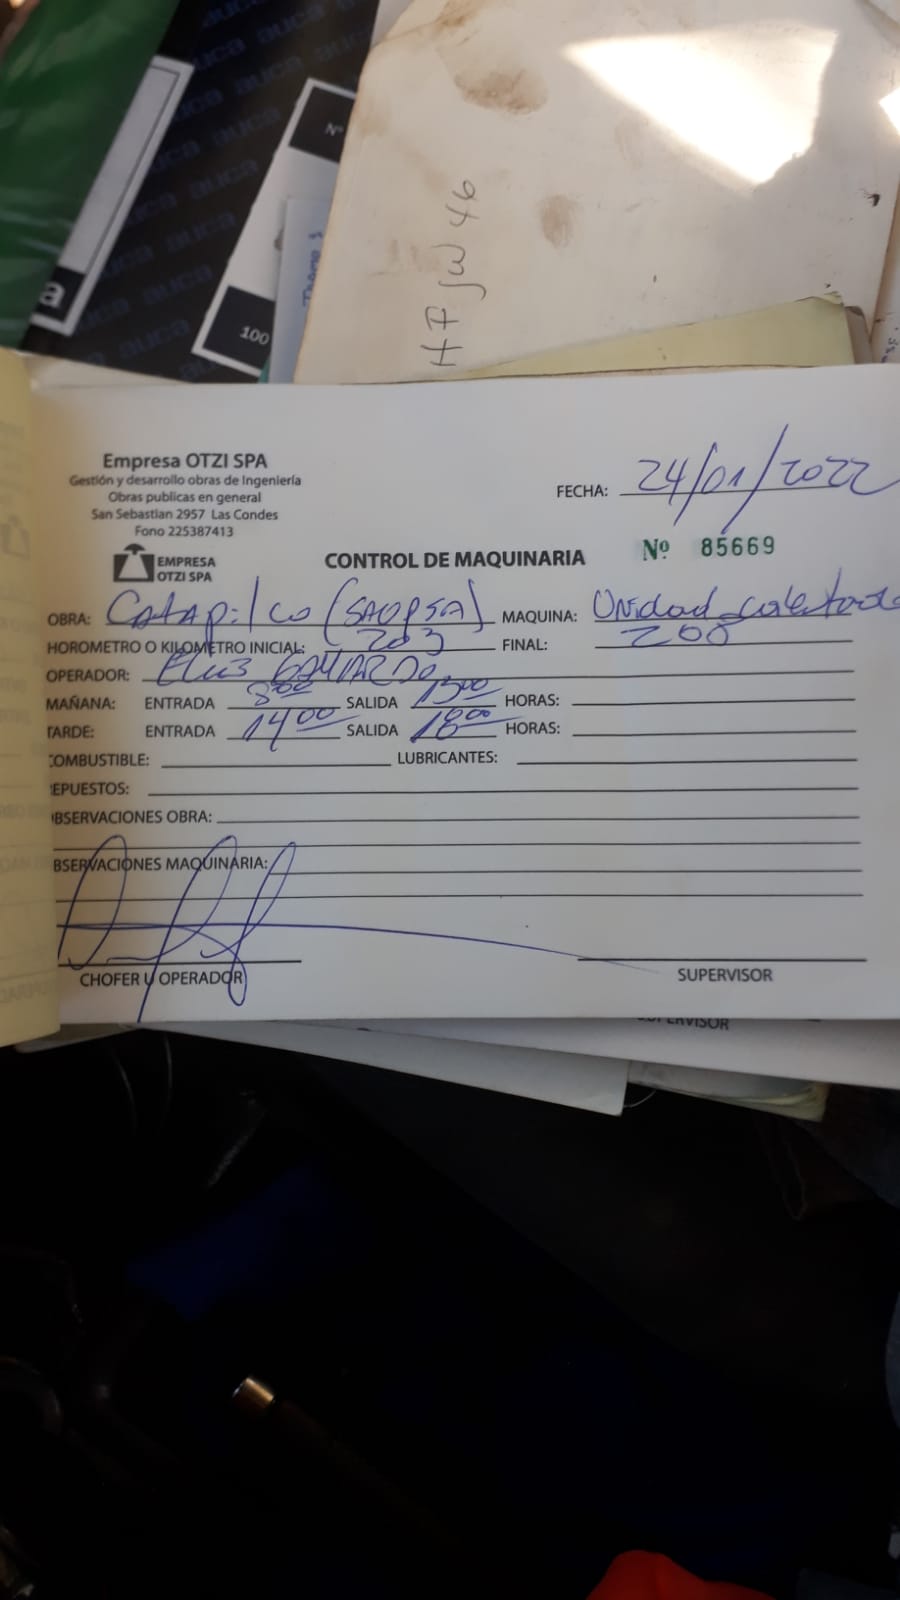 auca auca auca
auca auca
auca auca
auca
Nº
a
100
HFJW46
Empresa OTZI SPA
Gestión y desarrollo obras de Ingeniería
Obras publicas en general
San Sebastian 2957 Las Condes
Fono 225387413
FECHA: 24/01/2022
EMPRESA
OTZI SPA
CONTROL DE MAQUINARIA
Nº 85669
OBRA: Catapilco (SACPSA) MAQUINA: Unidad
HOROMETRO O KILOMETRO INICIAL: 203 FINAL:
OPERADOR: GAJARDO
MAÑANA: ENTRADA 8:00 SALIDA 13:00 HORAS:
TARDE: ENTRADA 14:00 SALIDA 18:00 HORAS:
COMBUSTIBLE: LUBRICANTES:
EPUESTOS:
BSERVACIONES OBRA:
BSERVACIONES MAQUINARIA:
CHOFER U OPERADOR
SUPERVISOR
SUPERVISOR